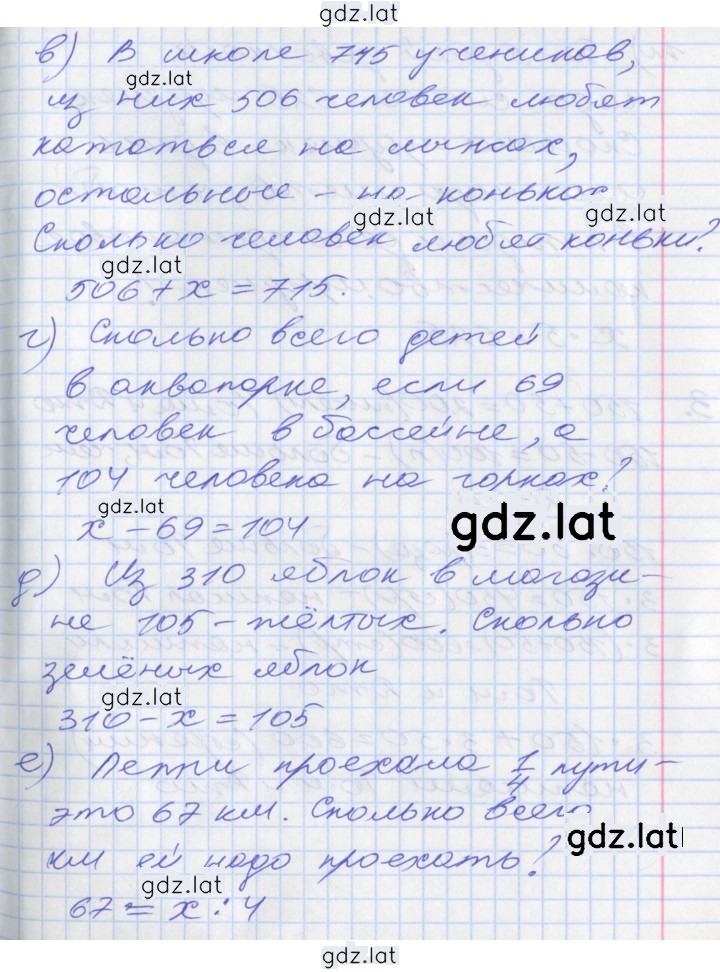 gdz.lat
в) В школе 745 учеников,
gdz.lat
из них 506 человек любят
кататься на лыжах,
остальные - на коньках
gdz.lat
gdz.lat
Сколько человек любят коньки?
gdz.lat
506 + х = 715.
г) Сколько всего детей
в аквапарке, если 69
человек в бассейне, а
104 человека на горках?
gdz.lat
х - 69 = 104
gdz.lat
д) Из 310 яблок в магази-
не 105 - жёлтых. Сколько
зелёных яблок
gdz.lat
310 - х = 105
е) Пеппи проехала 1/4 пути -
это 67 км. Сколько всего
gdz.lat
км ей надо проехать?
gdz.lat
67 = х : 4
gdz.lat